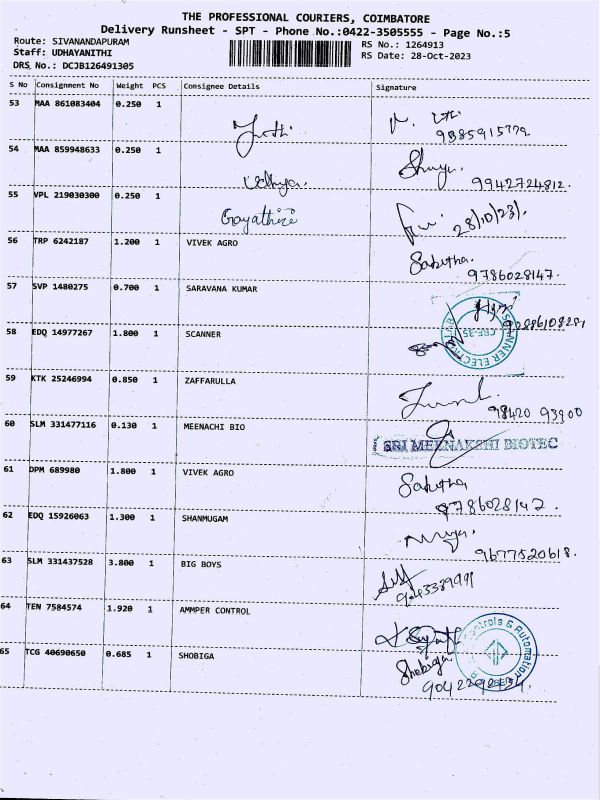 THE PROFESSIONAL COURIERS, COIMBATORE
Delivery Runsheet - SPT - Phone No.:0422-3505555 - Page No.:5
Route: SIVANANDAPURAM
RS No.: 1264913
Staff: UDHAYANITHI
RS Date: 28-Oct-2023
DRS No.: DCJB126491305
S No Consignment No Weight PCS Consignee Details Signature
53 MAA 861083404 0.250 1 Jothi
9385915772
54 MAA 859948633 0.250 1 Udhaya.
9942724812.
55 VPL 219030300 0.250 1 Gayathiri
28/10/23/.
56 TRP 6242187 1.200 1 VIVEK AGRO Sabitha.
9786028147.
57 SVP 1480275 0.700 1 SARAVANA KUMAR
58 EDQ 14977267 1.800 1 SCANNER
59 KTK 25246994 0.850 1 ZAFFARULLA
98420 93900
60 SLM 331477116 0.130 1 MEENACHI BIO
SRI MEENAKSHI BIOTEC
61 DPM 689980 1.800 1 VIVEK AGRO Sabitha
9786028147.
62 EDQ 15926063 1.300 1 SHANMUGAM
9677520618.
63 SLM 331437528 3.800 1 BIG BOYS
64 TEN 7584574 1.920 1 AMMPER CONTROL
Controls & Automation
65 TCG 40690650 0.685 1 SHOBIGA Shobiga